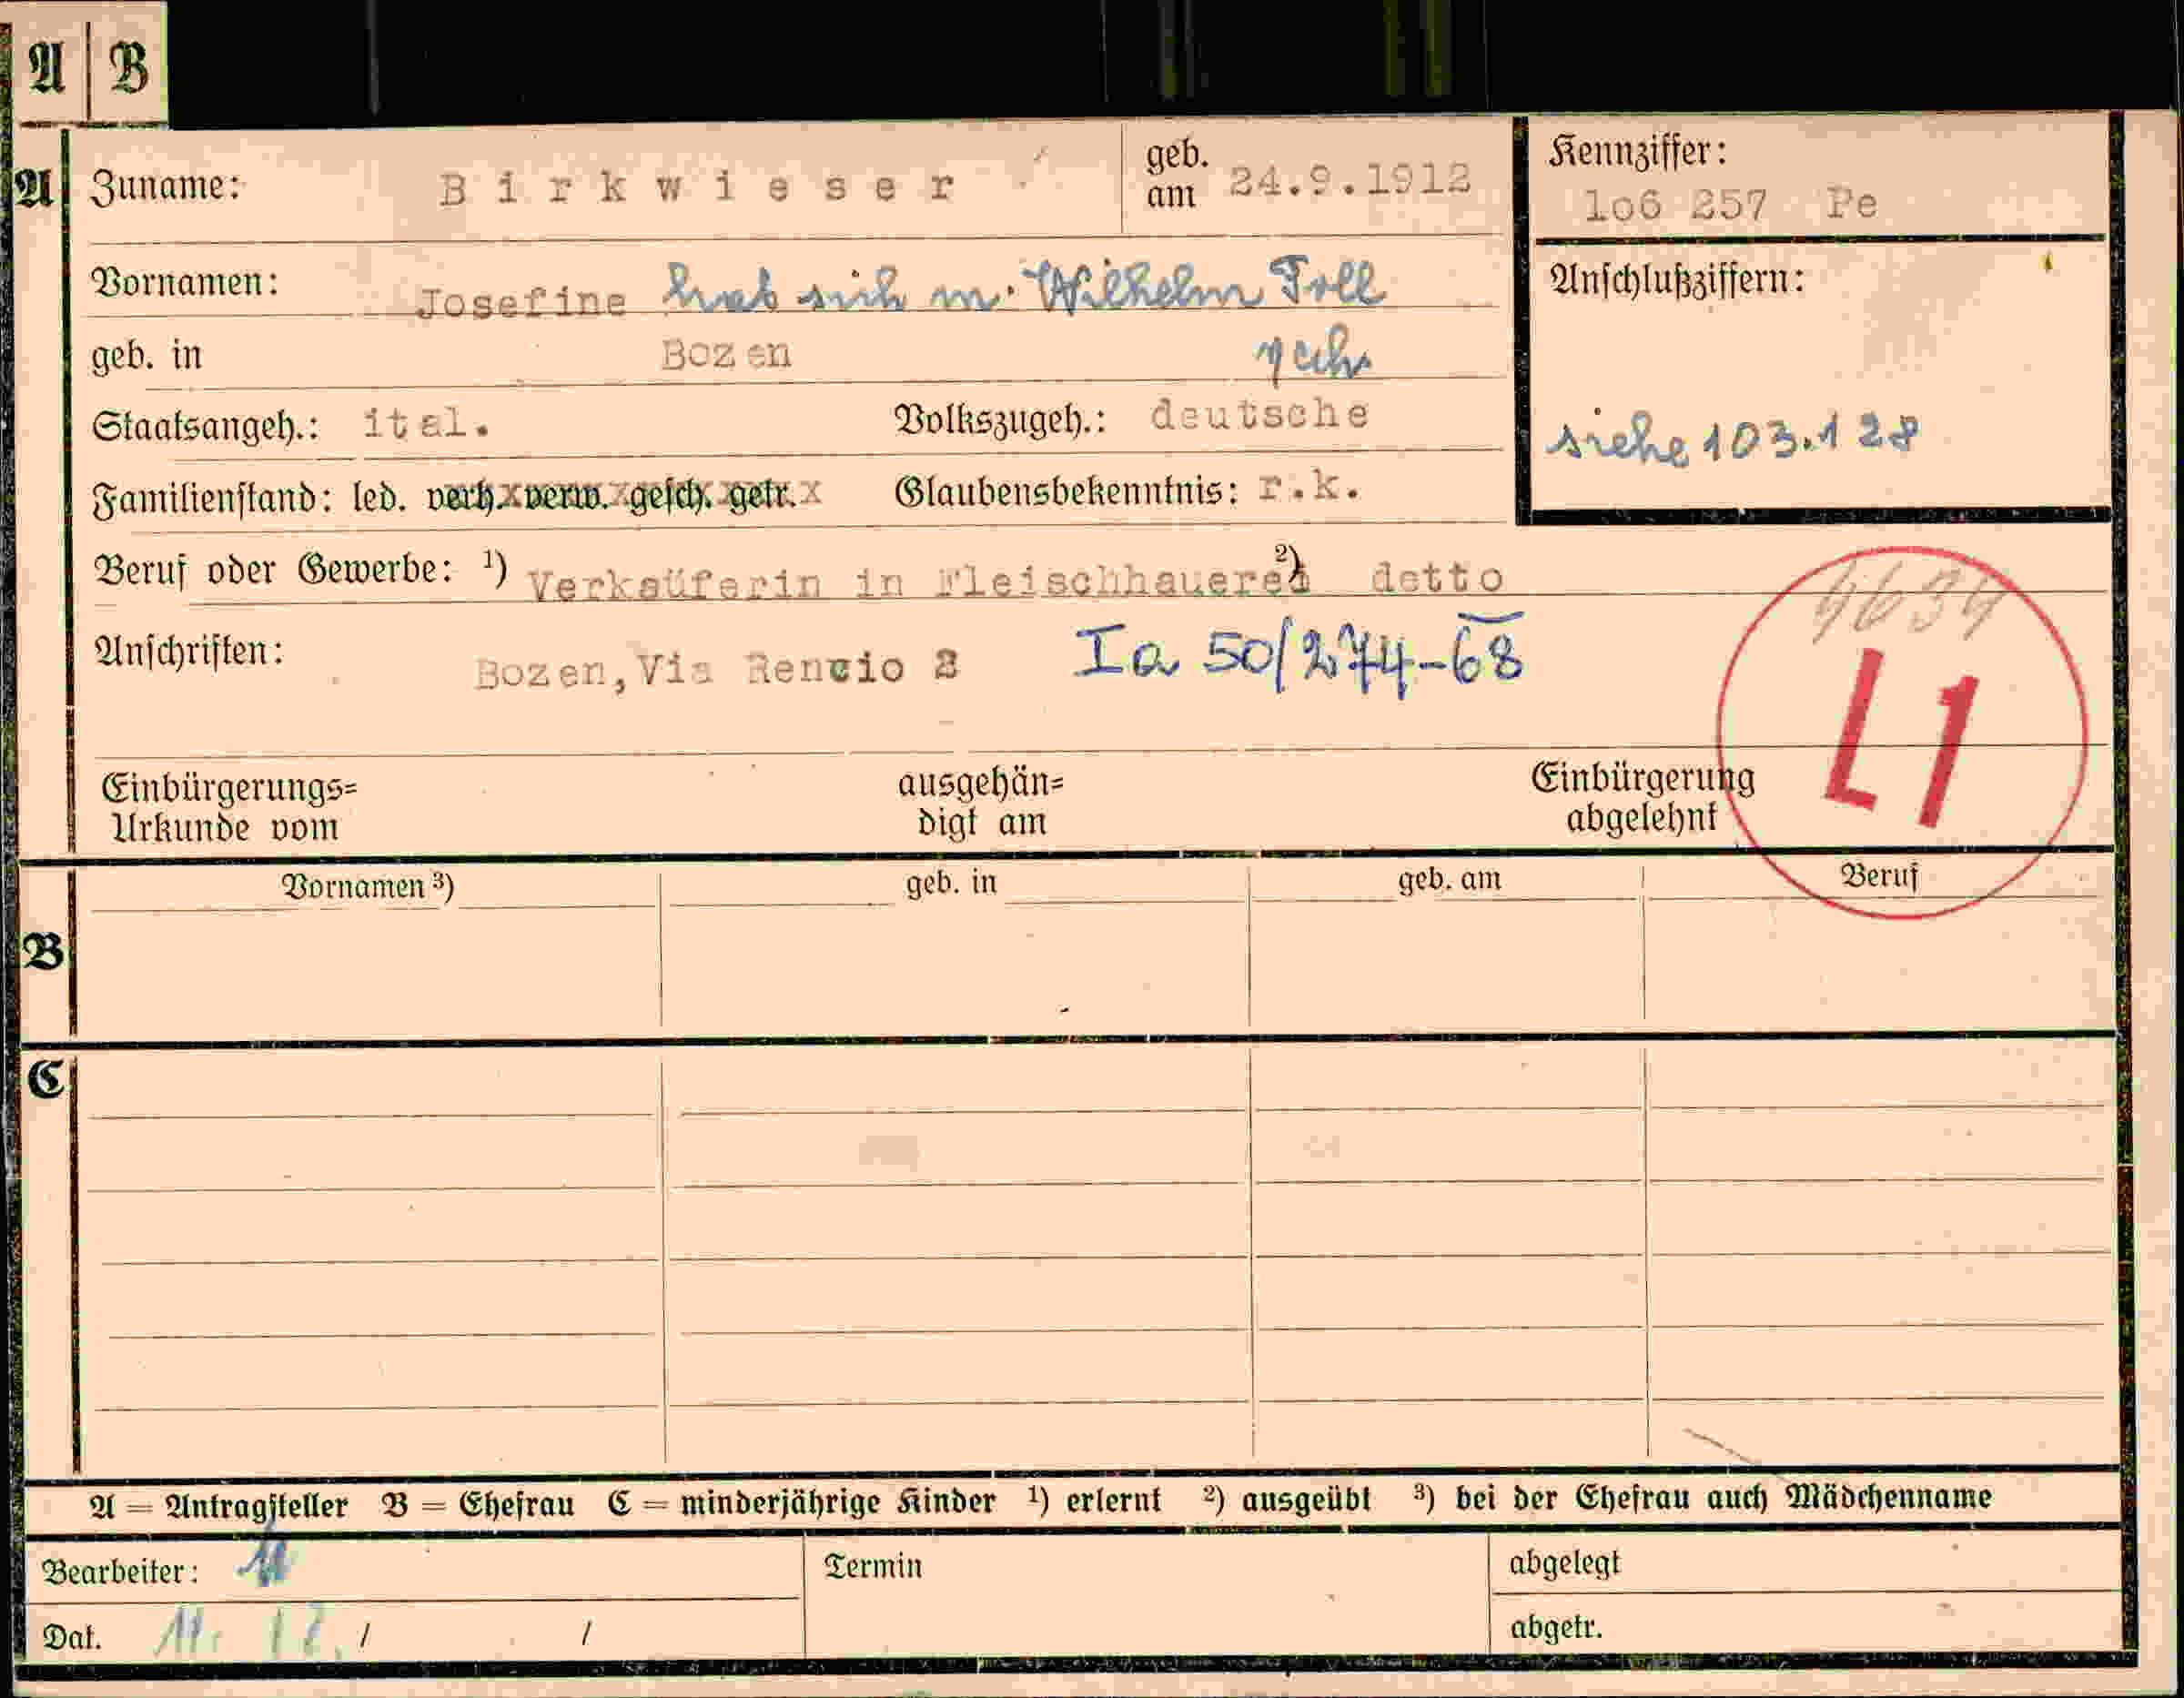 A B
A Zuname: Birkwieser geb. am 24.9.1912 Kennziffer:
1o6 257 Pe
Vornamen: Josefine hat sich m. Wilhelm Foll Anschlußziffern:
geb. in Bozen
Staatsangeh.: ital. Volkszugeh.: deutsche siehe 103.128
Familienstand: led. verh. verw. gesch. getr. Glaubensbekenntnis: r.k.
Beruf oder Gewerbe: 1) Verkaüferin in Fleischhauerei 2) detto
Anschriften: Bozen, Via Rencio 2 Ia 50/274-68
L1
Einbürgerungs=
Urkunde vom
ausgehän=
digt am
Einbürgerung
abgelehnt
Vornamen 3) geb. in geb. am Beruf
B
C
A = Antragsteller B = Ehefrau C = minderjährige Kinder 1) erlernt 2) ausgeübt 3) bei der Ehefrau auch Mädchenname
Bearbeiter: Termin abgelegt
Dat. 11. 12. / / abgetr.